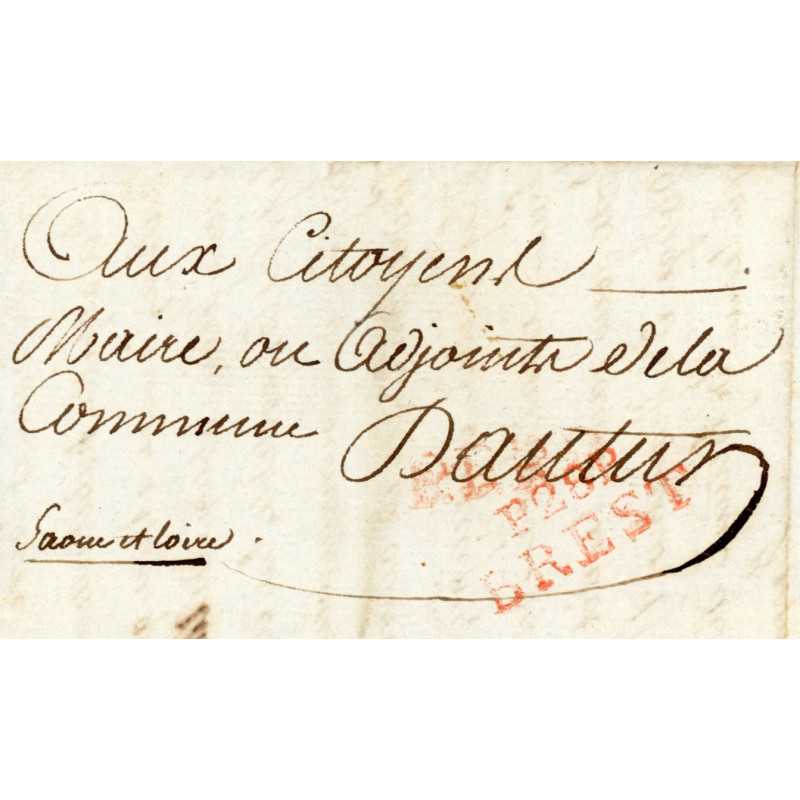 Aux Citoyens
Maire, ou Adjoints de la
Commune Dautun
Saone et loire.
P28P
BREST